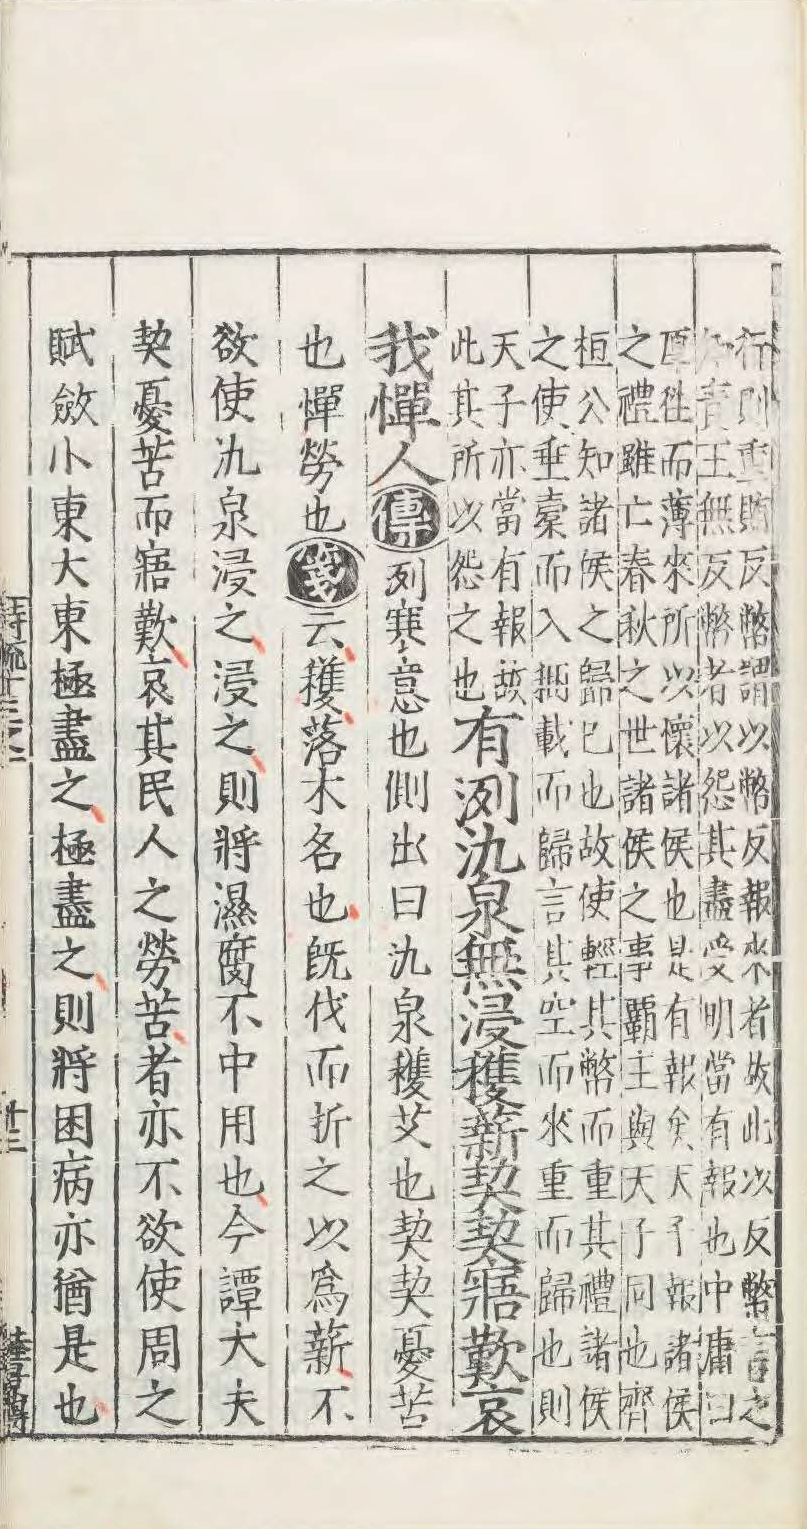 行則重賄反幣謂以幣反報來者故此以反幣言之
責王無反幣者以怨其盡受明當有報也中庸曰
厚徃而薄來所以懷諸侯也是有報矣天子報諸侯
之禮雖亡春秋之世諸侯之事霸主與天子同也齊
桓公知諸侯之歸已也故使輕其幣而重其禮諸侯
之使垂櫜而入稇載而歸言其空而來重而歸也則
天子亦當有報故
此其所以怨之也
有洌氿泉無浸穫薪契契寤歎哀
我憚人傳列寒意也側出曰氿泉穫艾也契契憂苦
也憚勞也箋云穫落木名也旣伐而折之以爲薪不
欲使氿泉浸之浸之則將濕腐不中用也今譚大夫
契憂苦而寤歎哀其民人之勞苦者亦不欲使周之
賦斂小東大東極盡之極盡之則將困病亦猶是也
詩疏十三之一
十三